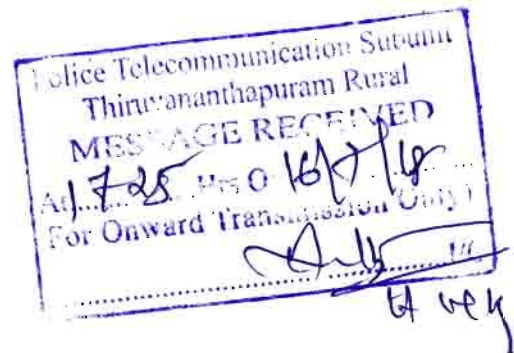 Police Telecommunication Subunit
Thiruvananthapuram Rural
MESSAGE RECEIVED
At 1725 Hrs On 16/7/18
(For Onward Transmission Only)